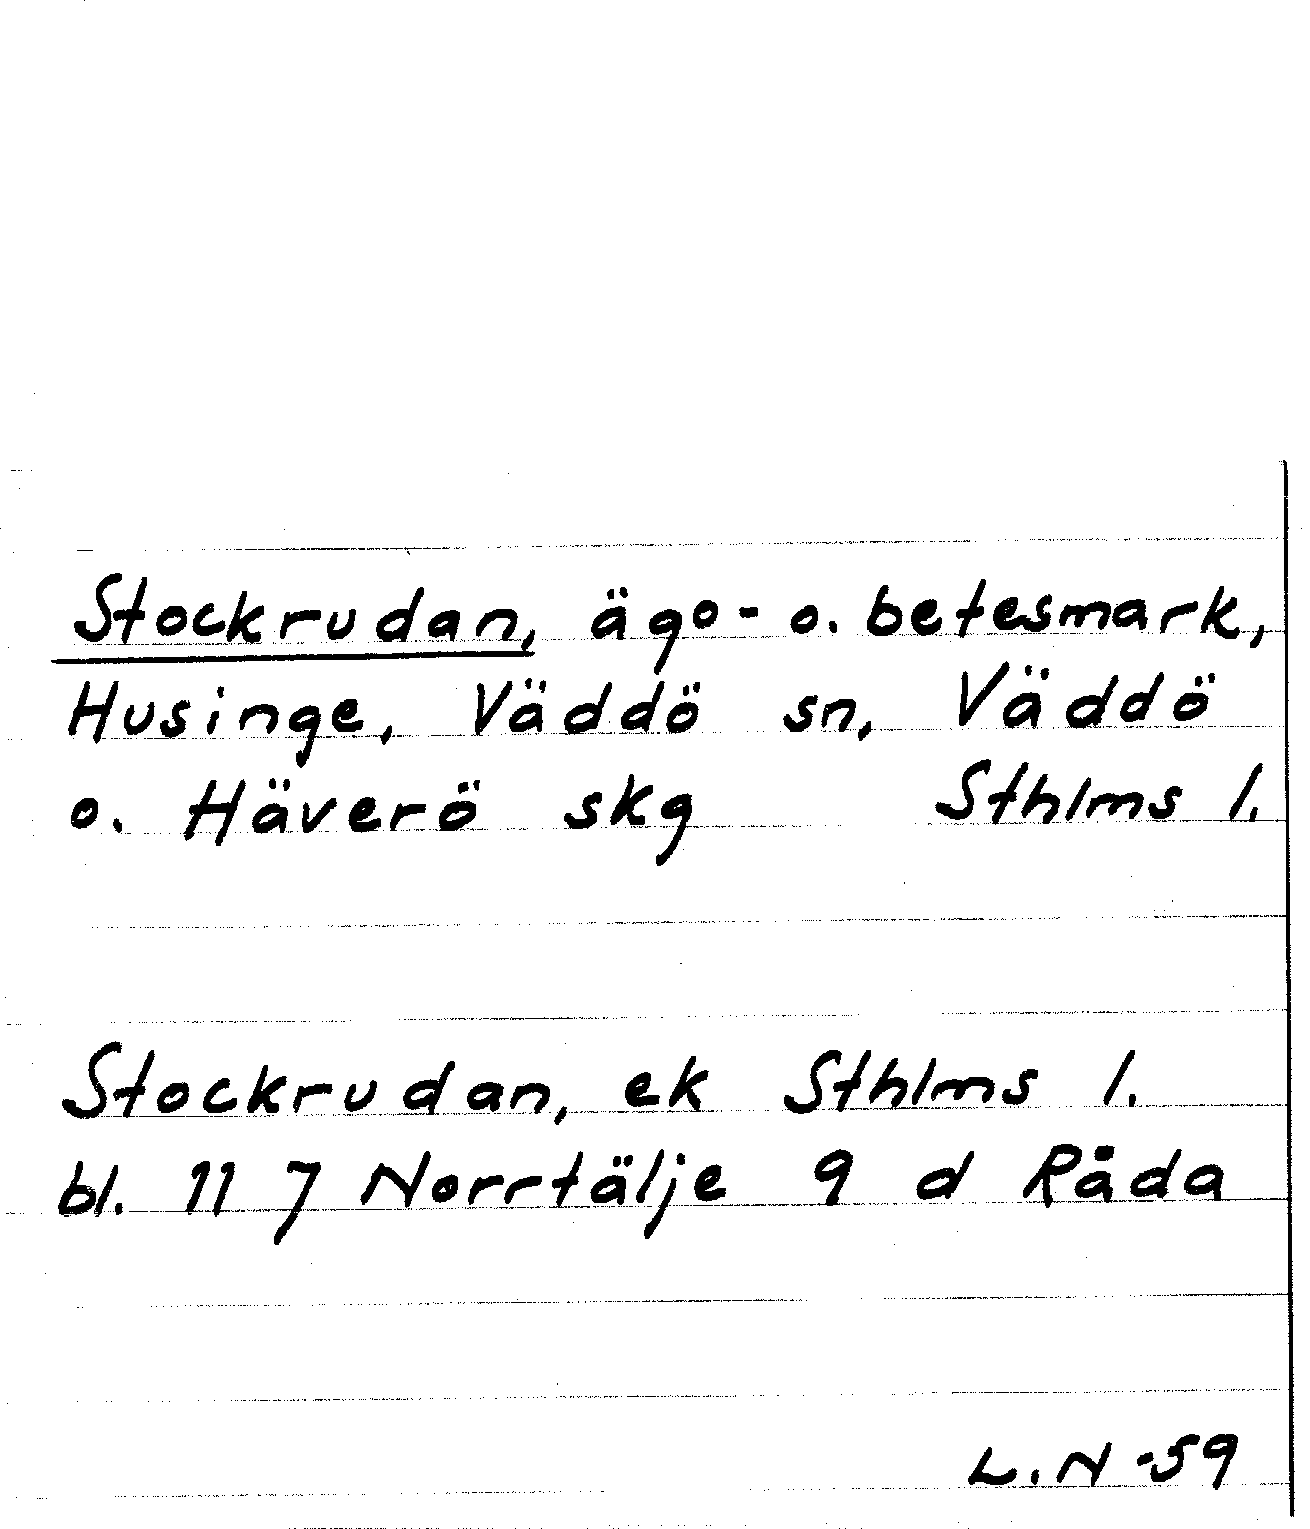 Stockrudan, ägo- o. betesmark,
Husinge, Väddö sn, Väddö
o. Häverö skg Sthlms l.
Stockrudan, ek Sthlms l.
bl. 11 7 Norrtälje 9 d Råda
L.N -59